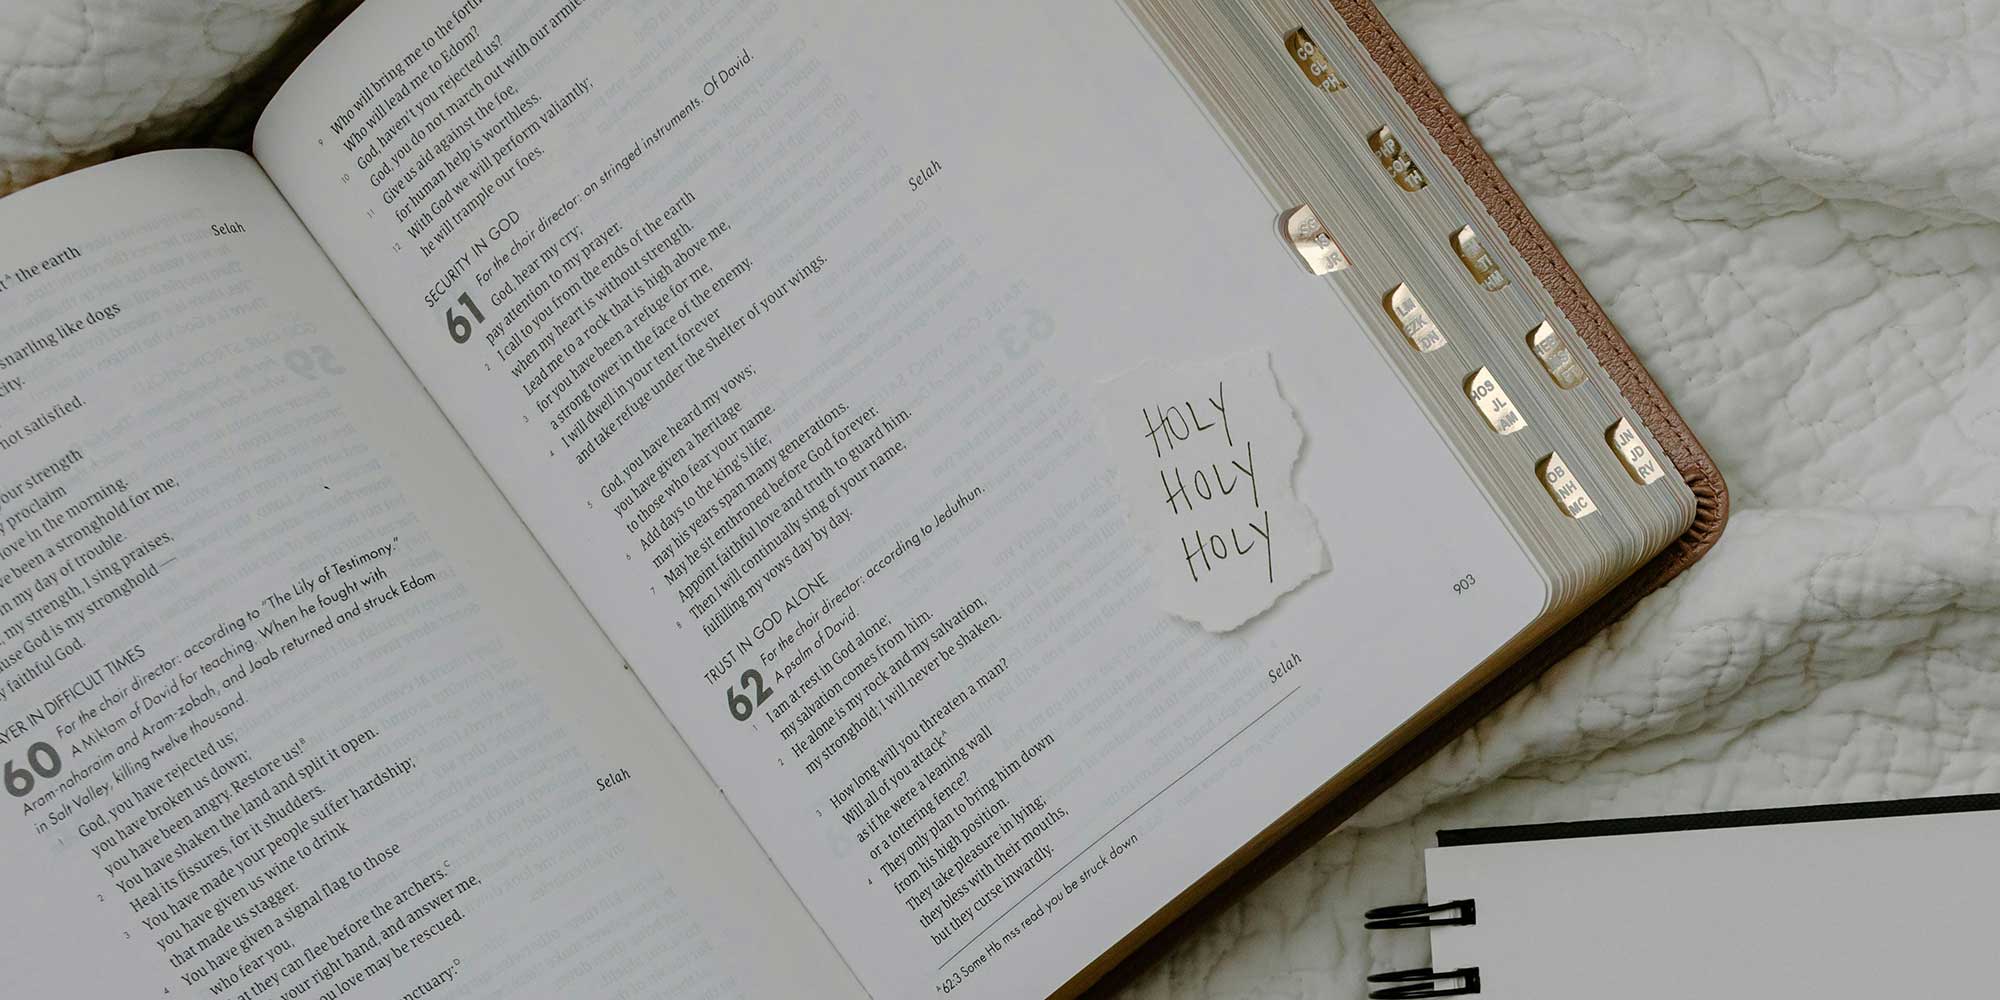 t ᴬ the earth
Selah
snarling like dogs
city.
not satisfied.
your strength
proclaim
love in the morning.
been a stronghold for me,
in my day of trouble.
my strength, I sing praises,
God is my stronghold —
faithful God.
IN DIFFICULT TIMES
60 For the choir director: according to “The Lily of Testimony.”
A Miktam of David for teaching. When he fought with
Aram-naharaim and Aram-zobah, and Joab returned and struck Edom
in Salt Valley, killing twelve thousand.
1 God, you have rejected us;
you have broken us down;
you have been angry. Restore us!ᴮ
2 You have shaken the land and split it open.
Heal its fissures, for it shudders.
3 You have made your people suffer hardship;
you have given us wine to drink
that made us stagger.
4 You have given a signal flag to those
who fear you,
they can flee before the archers.ꟲ
Selah
your right hand, and answer me,
you love may be rescued.
sanctuary:ᴰ
9 Who will bring me to the
Who will lead me to Edom?
10 God, haven't you rejected us?
God, you do not march out with our
11 Give us aid against the foe,
for human help is worthless.
12 With God we will perform valiantly;
he will trample our foes.
SECURITY IN GOD
61 For the choir director: on stringed instruments. Of David.
God, hear my cry;
pay attention to my prayer.
2 I call to you from the ends of the earth
when my heart is without strength.
Lead me to a rock that is high above me,
3 for you have been a refuge for me,
a strong tower in the face of the enemy.
4 I will dwell in your tent forever
and take refuge under the shelter of your wings.
Selah
5 God, you have heard my vows;
you have given a heritage
to those who fear your name.
6 Add days to the king's life;
may his years span many generations.
7 May he sit enthroned before God forever.
Appoint faithful love and truth to guard him.
8 Then I will continually sing of your name,
fulfilling my vows day by day.
TRUST IN GOD ALONE
62 For the choir director: according to Jeduthun.
A psalm of David.
1 I am at rest in God alone;
my salvation comes from him.
2 He alone is my rock and my salvation,
my stronghold; I will never be shaken.
3 How long will you threaten a man?
Will all of you attackᴬ
as if he were a leaning wall
or a tottering fence?
4 They only plan to bring him down
from his high position.
They take pleasure in lying;
they bless with their mouths,
but they curse inwardly.
Selah
ᴬ 62:3 Some Hb mss read you be struck down
903
HOLY
HOLY
HOLY
CO
GL
SG
IS
JR
LM
EZK
DN
HOS
JL
AM
OB
NH
MC
JN
JD
RV